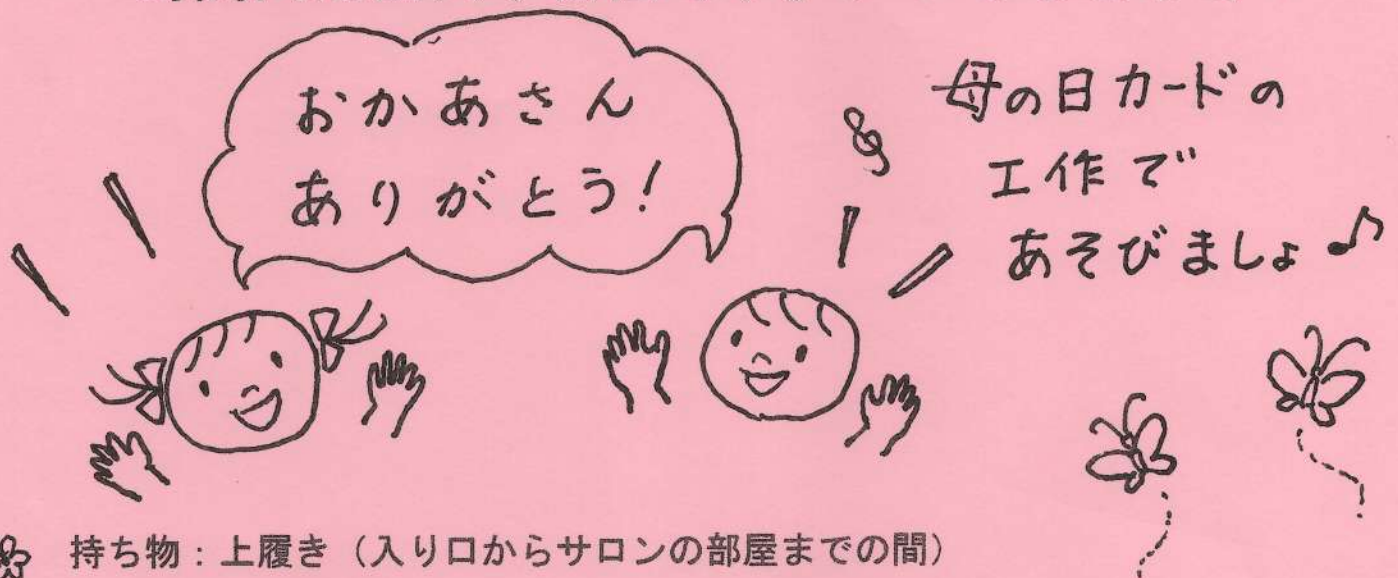 おかあさん
ありがとう!
母の日カードの
工作で
あそびましょ♪
持ち物:上履き(入り口からサロンの部屋までの間)